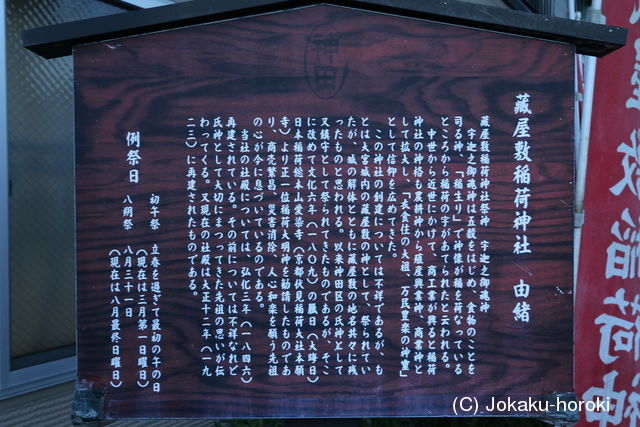 神田
藏屋敷稲荷神社 由緒
藏屋敷稲荷神社祭神 宇迦之御魂神
宇迦之御魂神は五穀をはじめ、食物のことを
司る神、「稲生り」で神像が稲を荷なっている
ところから稲荷の字があてられたと云われる。
中世から近世にかけて、商工業が興ると稲荷
神社の神格も農耕神から殖産興業神、商業神と
して拡大し、「衣食住の大祖、万民豊楽の神霊」
として信仰を広めてきた。
この神社の創建については不祥であるが、も
とは大宮城内の蔵屋敷の神として、祭られてい
たが、城の解体とともに蔵屋敷の地名共々に残
ったものと思われる。以来神田区の氏神として
又鎮守として祭られてきたものであるが、そこ
に改めて文化六年（一八〇九）の臘日（大晦日）
日本稲荷総本山愛染寺（京都伏見稲荷大社本願
寺）より正一位稲荷大明神を勧請したものであ
り、商売繁昌、災害消除、人心和楽を願う先祖
の心が今に息づいているのである。
当社の社殿については、弘化三年（一八四六）
再建されている。その前については不祥なれど
氏神として大切にまつってきた先祖の思いが伝
わってくる。又現在の社殿は大正十二年（一九
二三）に再建されたものである。
例祭日
初午祭 立春を過ぎて最初の午の日
（現在は三月第一日曜日）
八朔祭 八月三十一日
（現在は八月最終日曜日）
屋敷稲荷神
(C) Jokaku-horoki